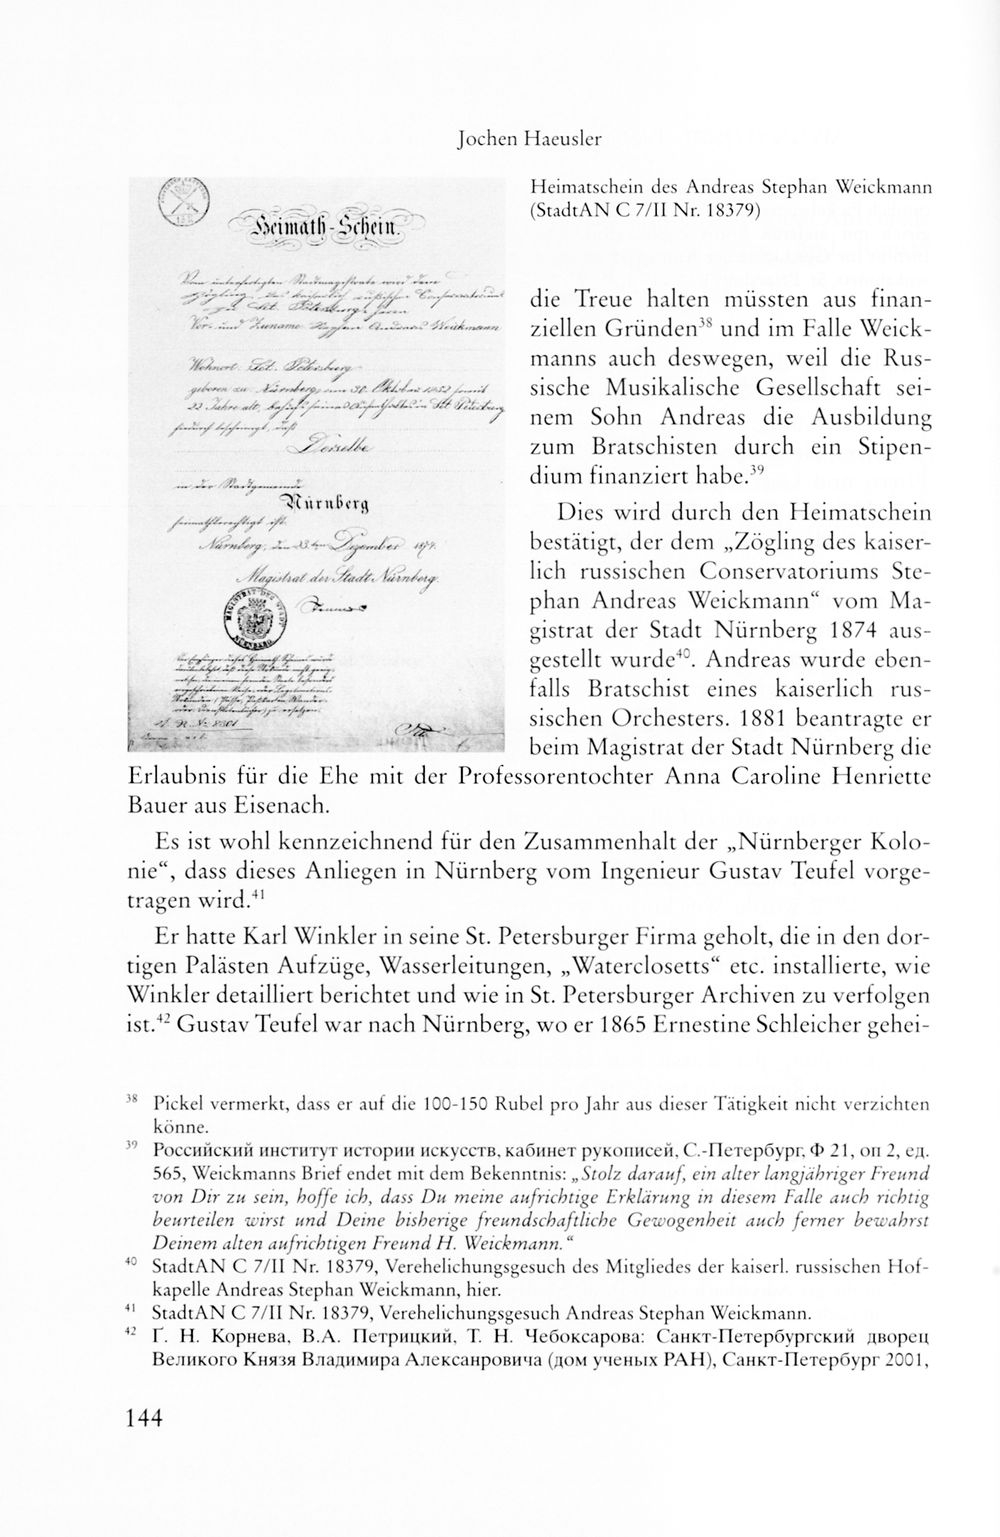 Jochen Haeusler
Heimath-Schein.
Wohnort: Sct. Petersburg
Derselbe
Nürnberg
Nürnberg, den 23ten Dezember 1874.
Magistrat der Stadt Nürnberg.
Heimatschein des Andreas Stephan Weickmann
(StadtAN C 7/II Nr. 18379)
die Treue halten müssten aus finan-
ziellen Gründen³⁸ und im Falle Weick-
manns auch deswegen, weil die Rus-
sische Musikalische Gesellschaft sei-
nem Sohn Andreas die Ausbildung
zum Bratschisten durch ein Stipen-
dium finanziert habe.³⁹
Dies wird durch den Heimatschein
bestätigt, der dem „Zögling des kaiser-
lich russischen Conservatoriums Ste-
phan Andreas Weickmann“ vom Ma-
gistrat der Stadt Nürnberg 1874 aus-
gestellt wurde⁴⁰. Andreas wurde eben-
falls Bratschist eines kaiserlich rus-
sischen Orchesters. 1881 beantragte er
beim Magistrat der Stadt Nürnberg die
Erlaubnis für die Ehe mit der Professorentochter Anna Caroline Henriette
Bauer aus Eisenach.
Es ist wohl kennzeichnend für den Zusammenhalt der „Nürnberger Kolo-
nie“, dass dieses Anliegen in Nürnberg vom Ingenieur Gustav Teufel vorge-
tragen wird.⁴¹
Er hatte Karl Winkler in seine St. Petersburger Firma geholt, die in den dor-
tigen Palästen Aufzüge, Wasserleitungen, „Waterclosetts“ etc. installierte, wie
Winkler detailliert berichtet und wie in St. Petersburger Archiven zu verfolgen
ist.⁴² Gustav Teufel war nach Nürnberg, wo er 1865 Ernestine Schleicher gehei-
³⁸ Pickel vermerkt, dass er auf die 100-150 Rubel pro Jahr aus dieser Tätigkeit nicht verzichten
könne.
³⁹ Российский институт истории искусств, кабинет рукописей, С.-Петербург, Ф 21, оп 2, ед.
565, Weickmanns Brief endet mit dem Bekenntnis: „Stolz darauf, ein alter langjähriger Freund
von Dir zu sein, hoffe ich, dass Du meine aufrichtige Erklärung in diesem Falle auch richtig
beurteilen wirst und Deine bisherige freundschaftliche Gewogenheit auch ferner bewahrst
Deinem alten aufrichtigen Freund H. Weickmann.“
⁴⁰ StadtAN C 7/II Nr. 18379, Verehelichungsgesuch des Mitgliedes der kaiserl. russischen Hof-
kapelle Andreas Stephan Weickmann, hier.
⁴¹ StadtAN C 7/II Nr. 18379, Verehelichungsgesuch Andreas Stephan Weickmann.
⁴² Г. Н. Корнева, В.А. Петрицкий, Т. Н. Чебоксарова: Санкт-Петербургский дворец
Великого Князя Владимира Алексанровича (дом ученых РАН), Санкт-Петербург 2001,
144